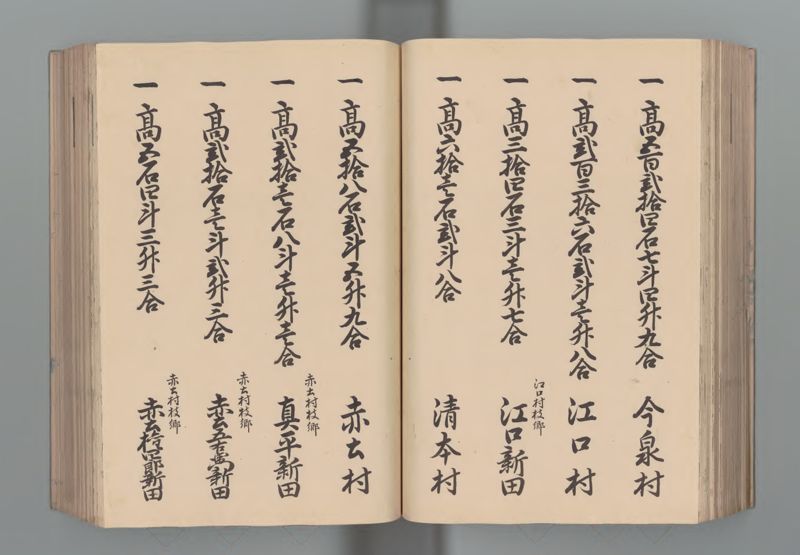 一高五百弐拾四石七斗四升九合 今泉村
一高弐百三拾六石弐斗壱升八合 江口村
江口村枝郷
一高三拾四石三斗壱升七合 江口新田
一高六拾壱石弐斗八合 清本村
一高五拾八石弐斗五升九合 赤土村
赤土村枝郷
一高弐拾壱石八斗壱升壱合 真平新田
赤土村枝郷
一高弐拾石壱斗弐升三合 赤土 新田
赤土村枝郷
一高五石四斗三升三合 赤土 新田